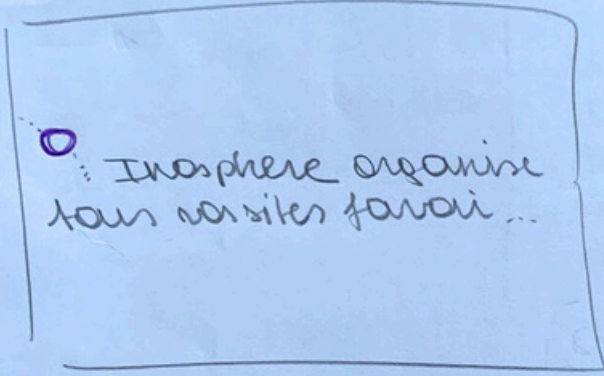 Inosphere organise
tous vos sites favori...